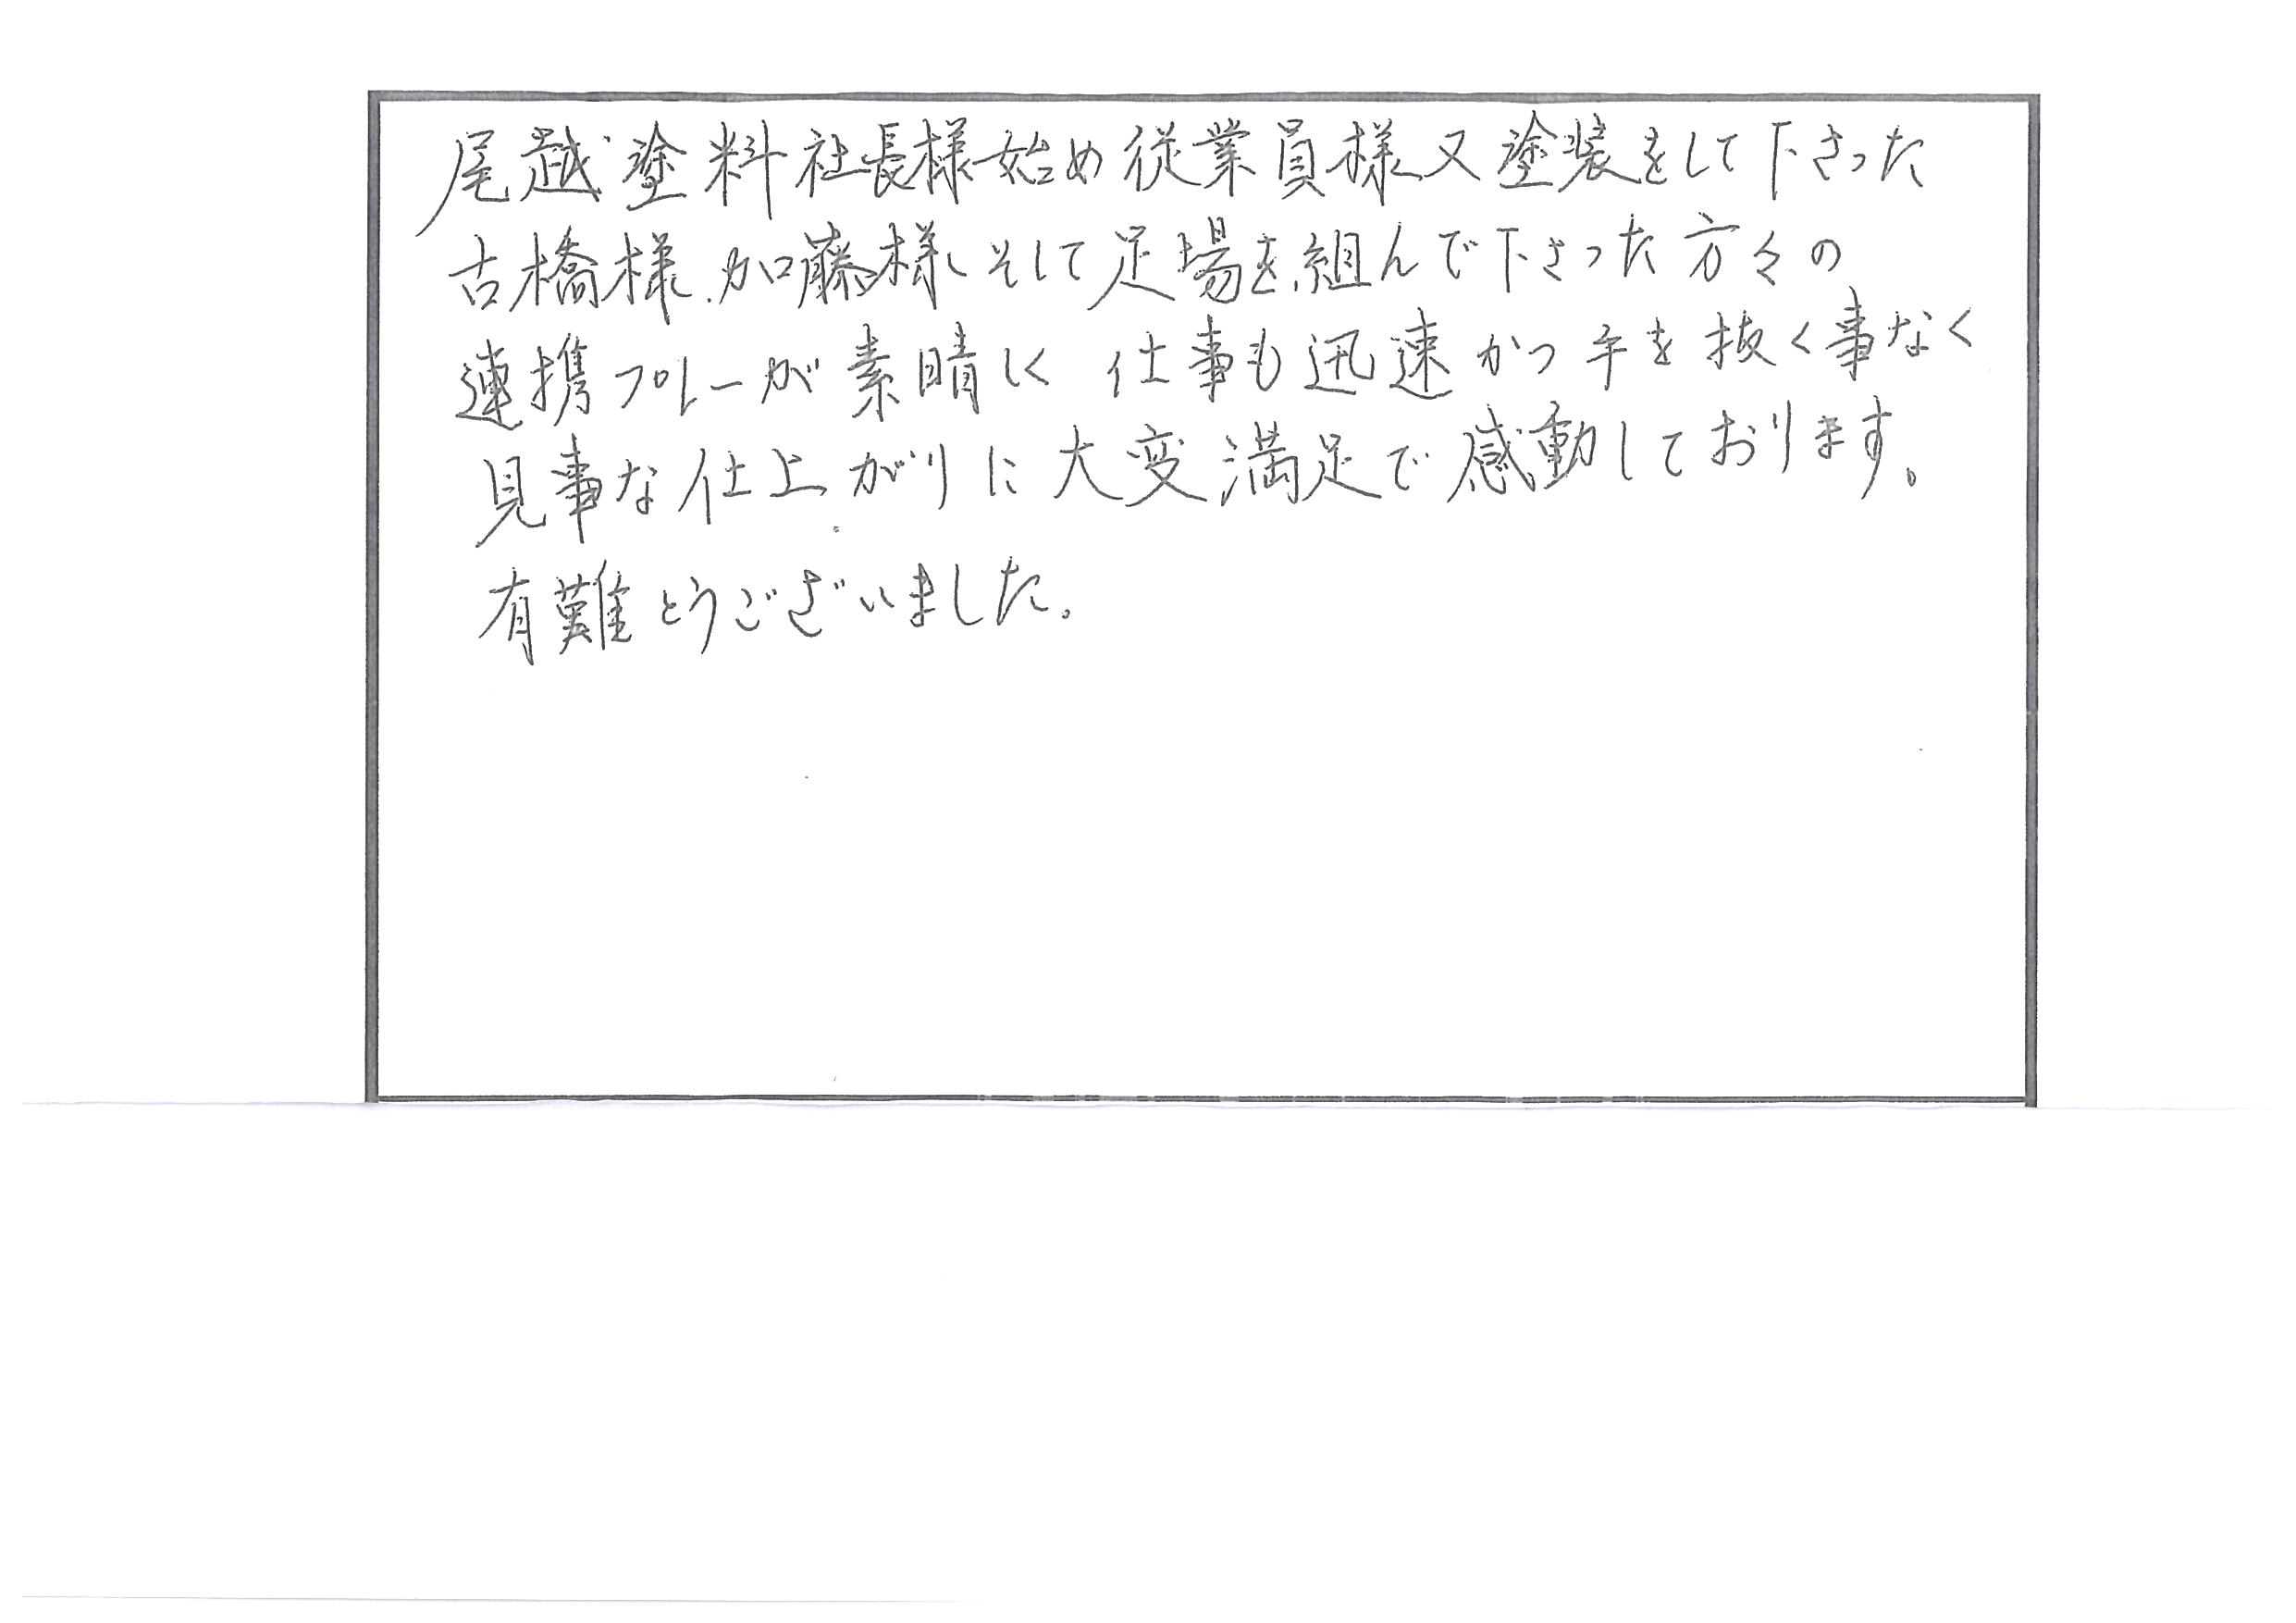 尾越塗料社長様始め従業員様又塗装をして下さった
古橋様、加藤様、そして足場を組んで下さった方々の
連携プレーが素晴しく 仕事も迅速かつ手を抜く事なく
見事な仕上がりに大変満足で感動しております。
有難とうございました。